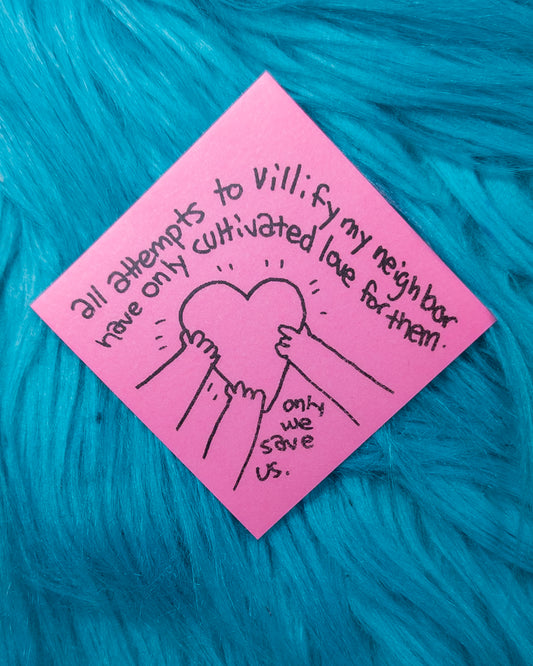 all attempts to villify my neighbor
have only cultivated love for them.
only
we
save
us.